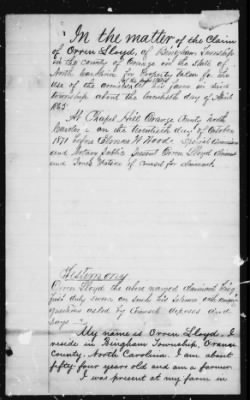 In the matter of the Claim
of Orren Lloyd, of Bingham Township
in the county of Orange in the State of
North Carolina for Property taken for the
use of the army of the
United States at his farm in said
township about the twentieth day of April
1865
At Chapel Hill Orange County North
Carolina on the twentieth day of October
1871 before Thomas H Woods Special Commissioner
and Notary Public present Orren Lloyd claimant
and of Counsel for claimant.
Testimony
Orren Lloyd the above named claimant being
first duly sworn
questions asked by Council deposes and
says "
My name is Orren Lloyd. I
reside in Bingham Township, Orange
County, North Carolina. I am about
fifty four years old and am a farmer.
I was present at my farm in